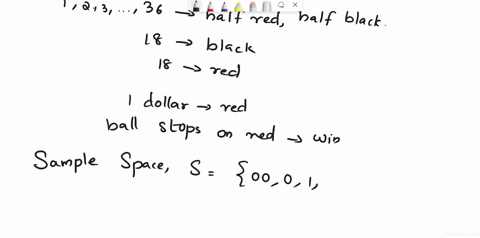 1, 2, 3, ..., 36 → half red, half black.
18 → black
18 → red
1 dollar → red
ball stops on red → win
Sample Space, S = {00, 0, 1,